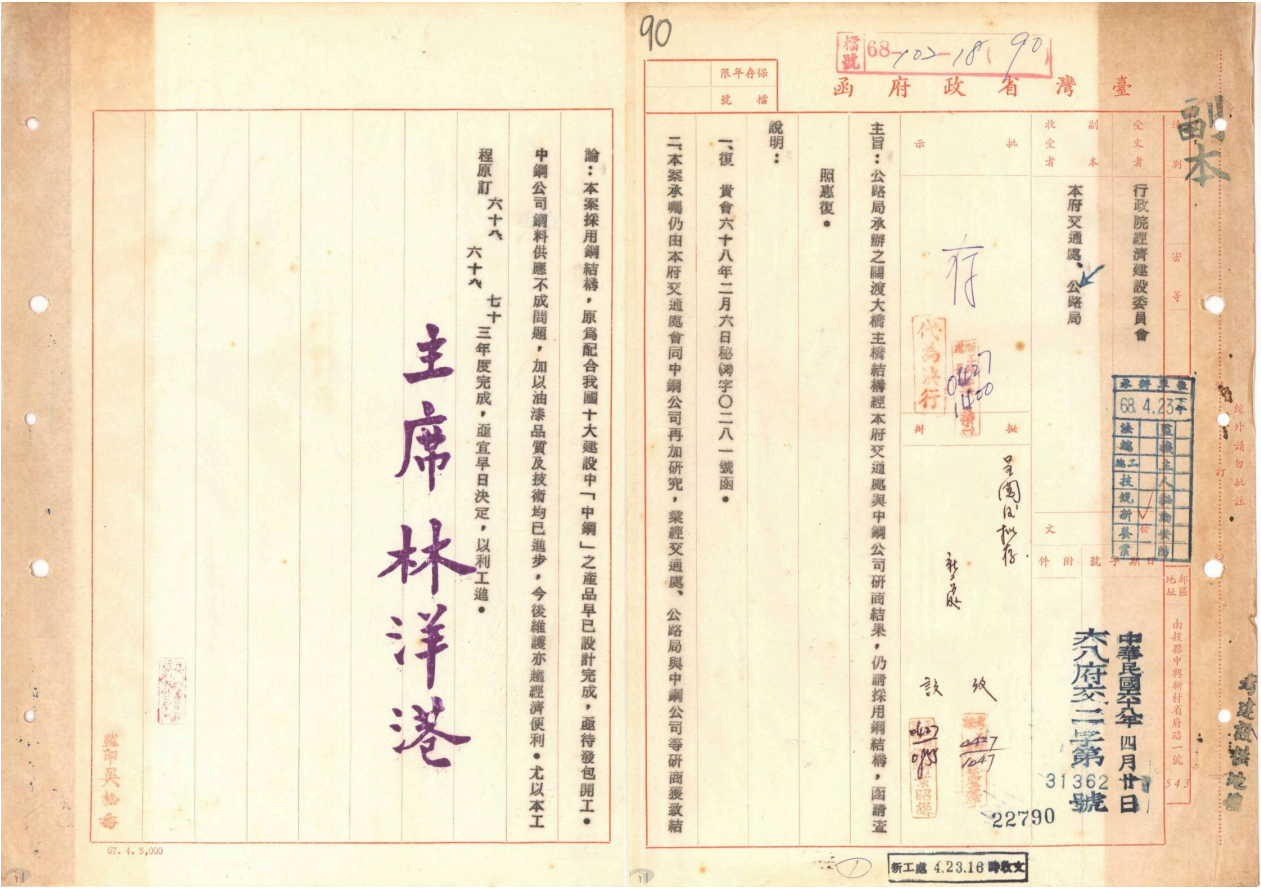 90
檔號 68-102-18(90)
臺灣省政府函
保存年限
檔號
副本
速別
密等
受文者
行政院經濟建設委員會
副本收受者
本府交通處、公路局
批示
存
代為決行
0427
1400
擬辦
呈閱後擬存
文
日期
字號
附件
中華民國六十八年四月廿日
六八府交二字第
31362
號
22790
郵區地址
南投縣中興新村省府路一號
543
線外請勿批註
訂
68. 4. 23
主旨：公路局承辦之關渡大橋主橋結構經本府交通處與中鋼公司研商結果，仍請採用鋼結構，函請查
照惠復。
說明：
一、復　貴會六十八年二月六日秘㈣字〇二八一號函。
二、本案承囑仍由本府交通處會同中鋼公司再加研究，業經交通處、公路局與中鋼公司等研商獲致結
論：本案採用鋼結構，原為配合我國十大建設中「中鋼」之產品早已設計完成，亟待發包開工。
中鋼公司鋼料供應不成問題，加以油漆品質及技術均已進步，今後維護亦趨經濟便利。尤以本工
程原訂六十八、六十九、七十三年度完成，亟宜早日決定，以利工進。
主席林洋港
0427
0955
0427
1047
67. 4. 5,000
新工處 4.23.16 時收文